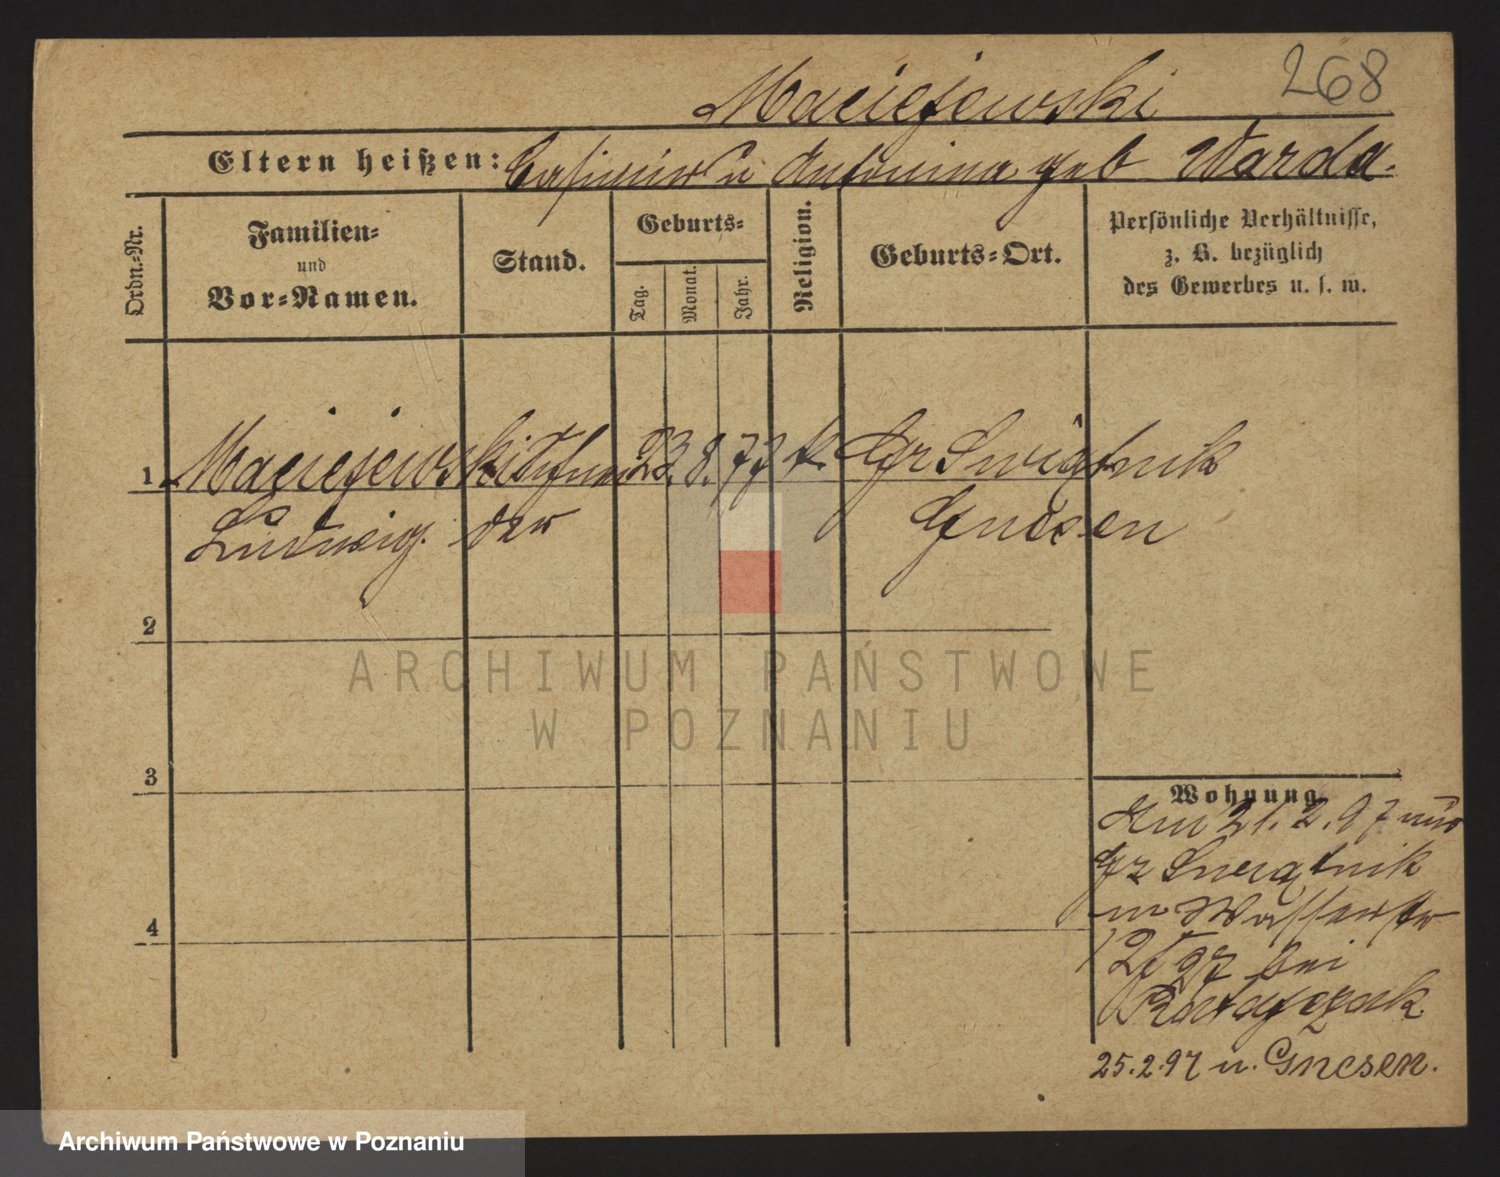 268
Maciejewski
Eltern heißen: Casimir u Antonina geb Warda.
Ordn.-Nr.
Familien-
und
Vor-Namen.
Stand.
Geburts-
Tag.
Monat.
Jahr.
Religion.
Geburts-Ort.
Persönliche Verhältnisse,
z. B. bezüglich
des Gewerbes u. s. w.
1 Maciejewski 23. 8. 77 k. Gr Swigtnik
Ludwig. Gnesen
2
3
4
Wohnung
Am 21. 2. 97 aus
Gr Swigtnik
in Wasserstr
12 bei
Ratajczak
25.2.97 n. Gnesen.
ARCHIWUM PAŃSTWOWE
W POZNANIU
Archiwum Państwowe w Poznaniu